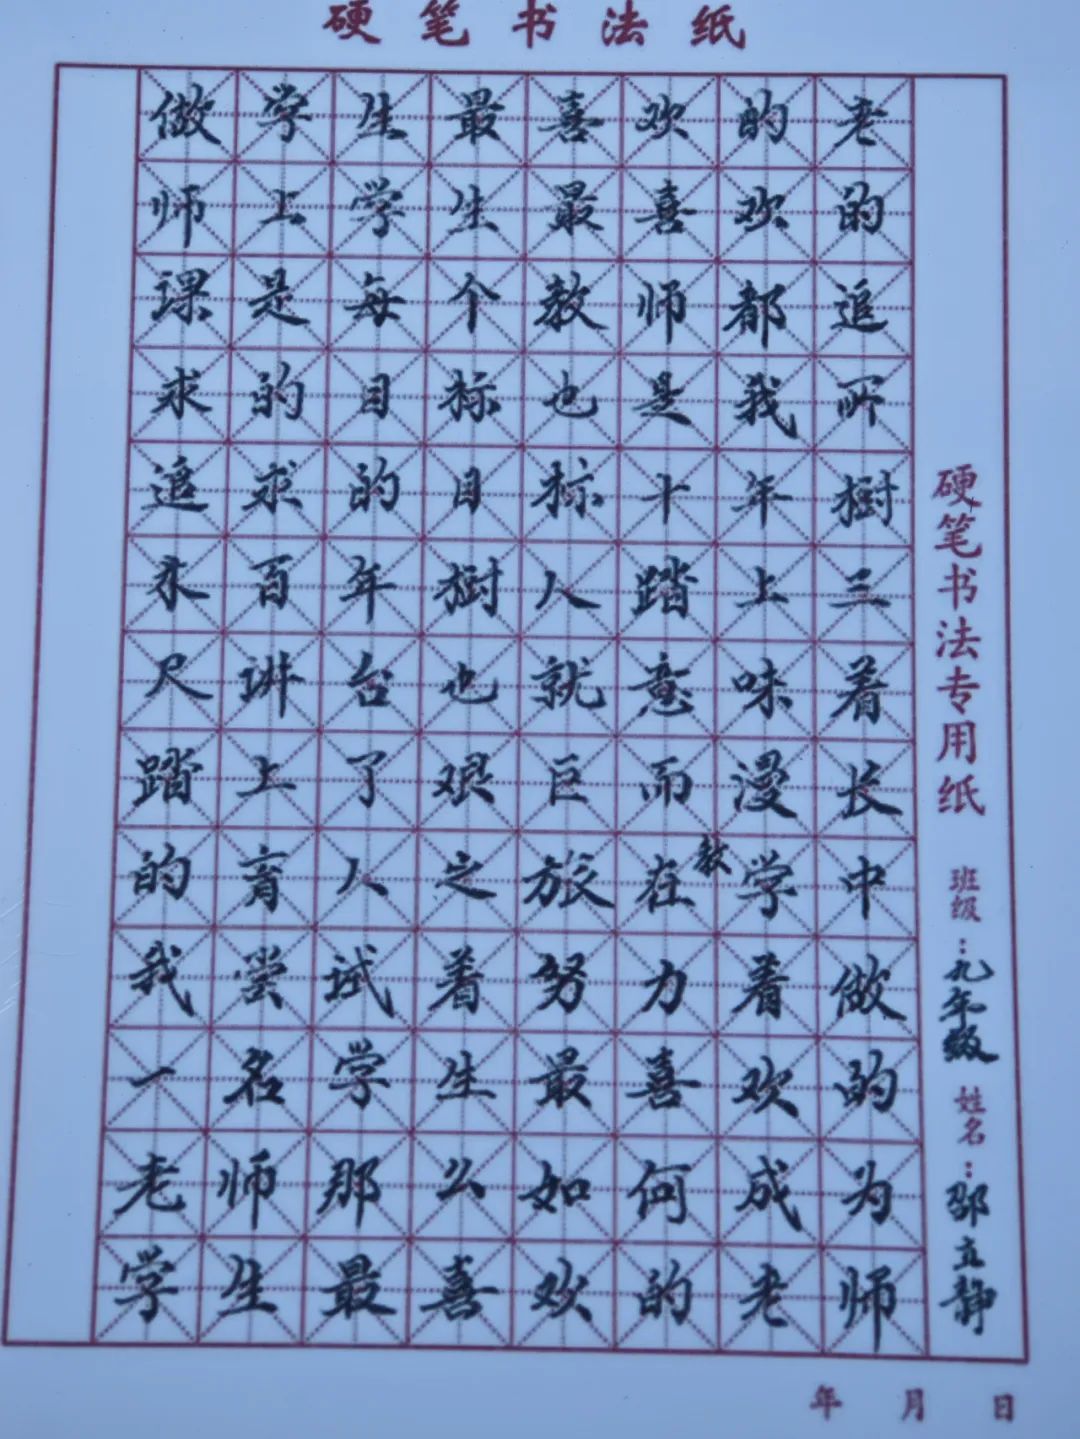 硬笔书法纸
做学生最喜欢的老
师上学生最喜欢的
课是每个教师都追
求的目标也是我所
追求的目标十年树
木百年树人踏上三
尺讲台也就意味着
踏上了艰巨而漫长
的育人之旅在教学中
我尝试着努力着做
一名学生最喜欢的
老师那么如何成为
学生最喜欢的老师
硬笔书法专用纸 班级：九年级 姓名：邵立静
年 月 日